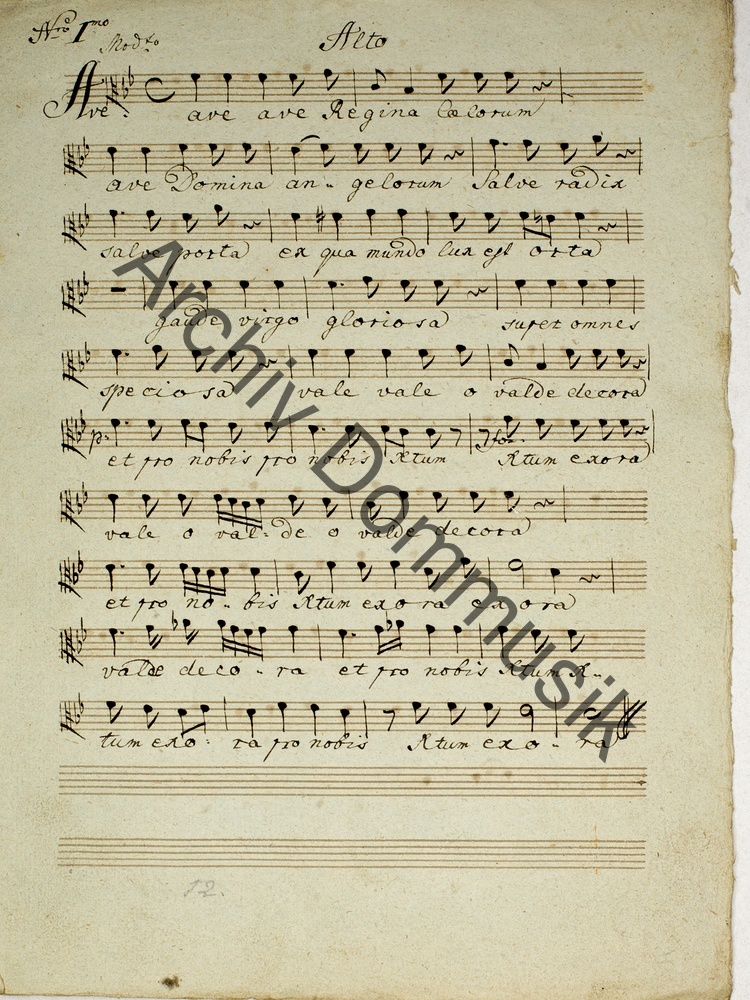 Nro 1mo
Alto
Modto
Ave: ave ave Regina Cælorum
ave Domina an-gelorum Salve radix
salve porta ex qua mundo lux est orta
gaude virgo gloriosa super omnes
speciosa vale vale o valde decora
p: et pro nobis pro nobis Xtum fo: Xtum exora
vale o val-de o valde decora
et pro no-bis Xtum exora exora
valde deco-ra et pro nobis Xtum X-
tum exo: ra pro nobis Xtum exo-ra
12.
Archiv Dommusik